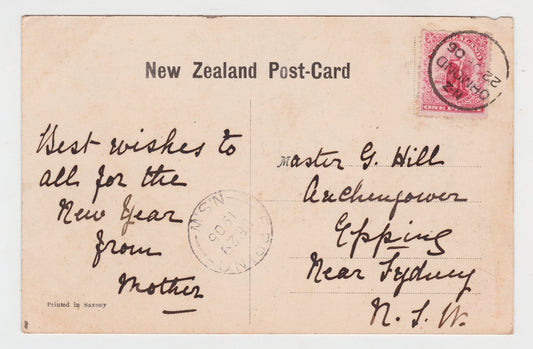 New Zealand Post-Card
Best wishes to
all for the
New Year
from
Mother
Printed in Saxony
Master G. Hill
Auchengower
Epping
Near Sydney
N. S. W.
ONE P
N.Z
ORMOND
22
06
EPPING
N.S.W
29
06